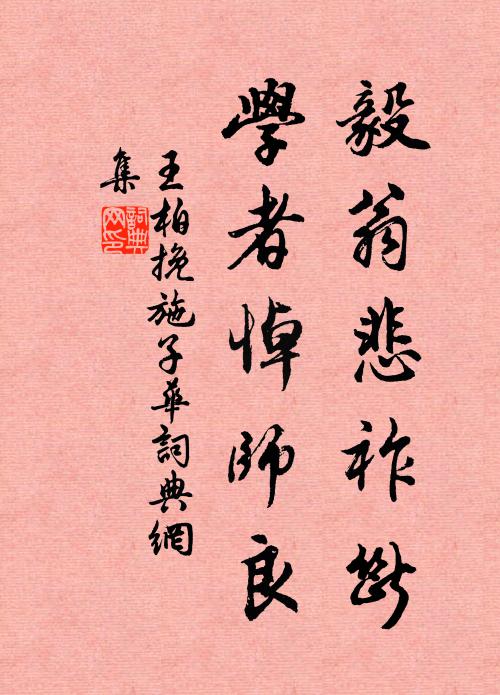 毅翁悲祚斷
學者悼師良
王柏挽施子華詞典網
集
詞典網印